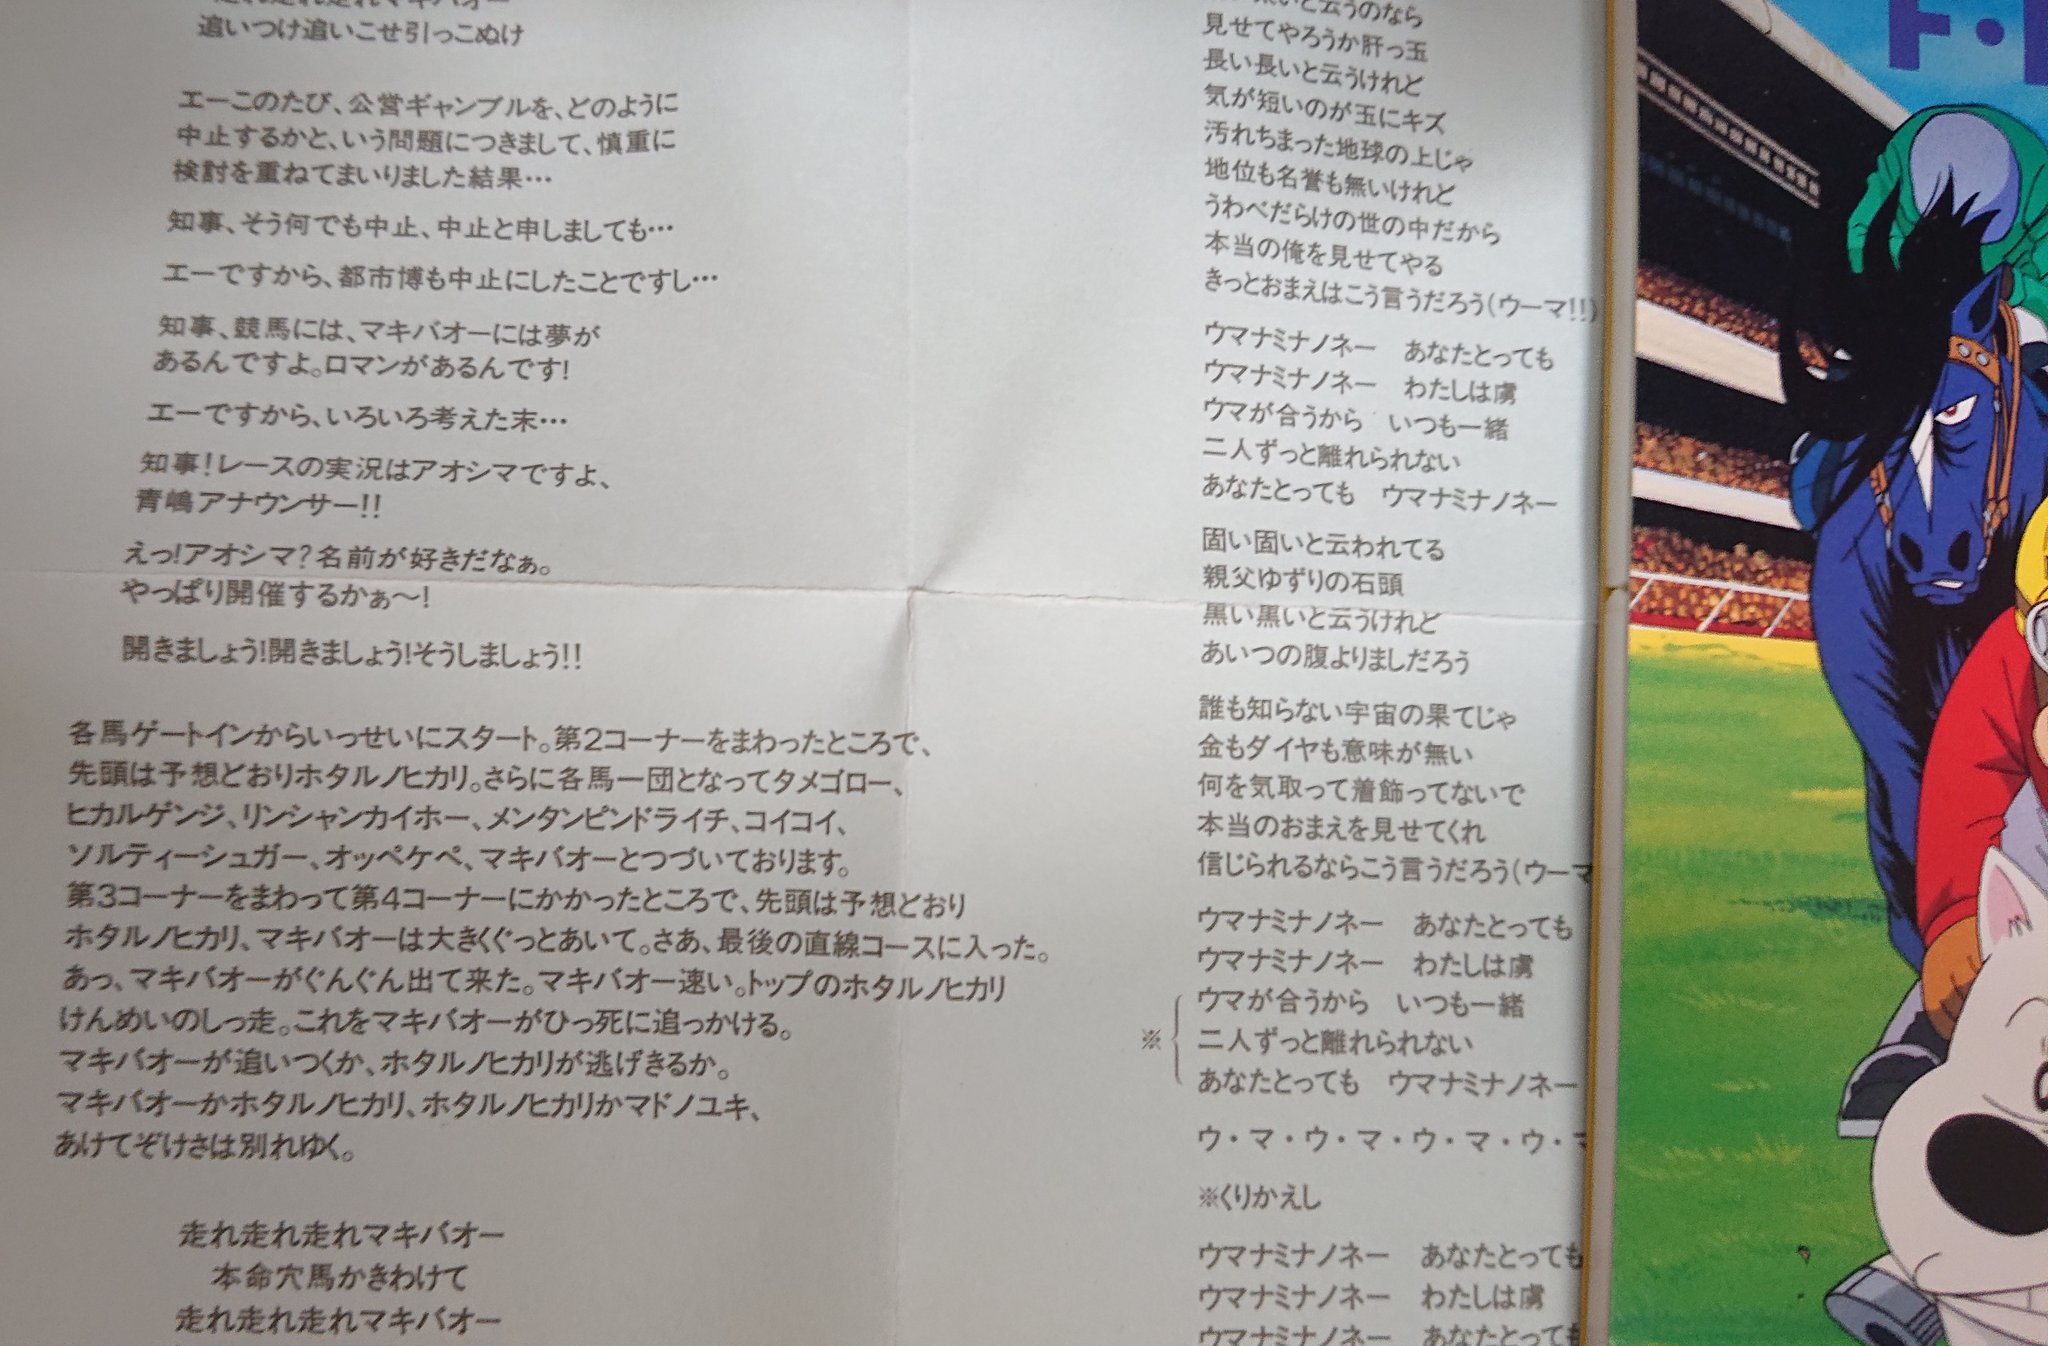 走れ走れ走れマキバオー
追いつけ追いこせ引っこぬけ
エーこのたび、公営ギャンブルを、どのように
中止するかと、いう問題につきまして、慎重に
検討を重ねてまいりました結果…
知事、そう何でも中止、中止と申しましても…
エーですから、都市博も中止にしたことですし…
知事、競馬には、マキバオーには夢が
あるんですよ。ロマンがあるんです!
エーですから、いろいろ考えた末…
知事!レースの実況はアオシマですよ、
青嶋アナウンサー!!
えっ!アオシマ?名前が好きだなぁ。
やっぱり開催するかぁ〜!
開きましょう!開きましょう!そうしましょう!!
各馬ゲートインからいっせいにスタート。第2コーナーをまわったところで、
先頭は予想どおりホタルノヒカリ。さらに各馬一団となってタメゴロー、
ヒカルゲンジ、リンシャンカイホー、メンタンピンドライチ、コイコイ、
ソルティーシュガー、オッペケペ、マキバオーとつづいております。
第3コーナーをまわって第4コーナーにかかったところで、先頭は予想どおり
ホタルノヒカリ、マキバオーは大きくぐっとあいて。さあ、最後の直線コースに入った。
あっ、マキバオーがぐんぐん出て来た。マキバオー速い。トップのホタルノヒカリ
けんめいのしっ走。これをマキバオーがひっ死に追っかける。
マキバオーが追いつくか、ホタルノヒカリが逃げきるか。
マキバオーかホタルノヒカリ、ホタルノヒカリかマドノユキ、
あけてぞけさは別れゆく。
走れ走れ走れマキバオー
本命穴馬かきわけて
走れ走れ走れマキバオー
いと云うのなら
見せてやろうか肝っ玉
長い長いと云うけれど
気が短いのが玉にキズ
汚れちまった地球の上じゃ
地位も名誉も無いけれど
うわべだらけの世の中だから
本当の俺を見せてやる
きっとおまえはこう言うだろう(ウーマ!!)
ウマナミナノネー　あなたとっても
ウマナミナノネー　わたしは虜
ウマが合うから　いつも一緒
二人ずっと離れられない
あなたとっても　ウマナミナノネー
固い固いと云われてる
親父ゆずりの石頭
黒い黒いと云うけれど
あいつの腹よりましだろう
誰も知らない宇宙の果てじゃ
金もダイヤも意味が無い
何を気取って着飾ってないで
本当のおまえを見せてくれ
信じられるならこう言うだろう(ウーマ
ウマナミナノネー　あなたとっても
ウマナミナノネー　わたしは虜
※ウマが合うから　いつも一緒
二人ずっと離れられない
あなたとっても　ウマナミナノネー
ウ・マ・ウ・マ・ウ・マ・ウ・マ
※くりかえし
ウマナミナノネー　あなたとっても
ウマナミナノネー　わたしは虜
ウマナミナノネー　あなたとっても
ト・